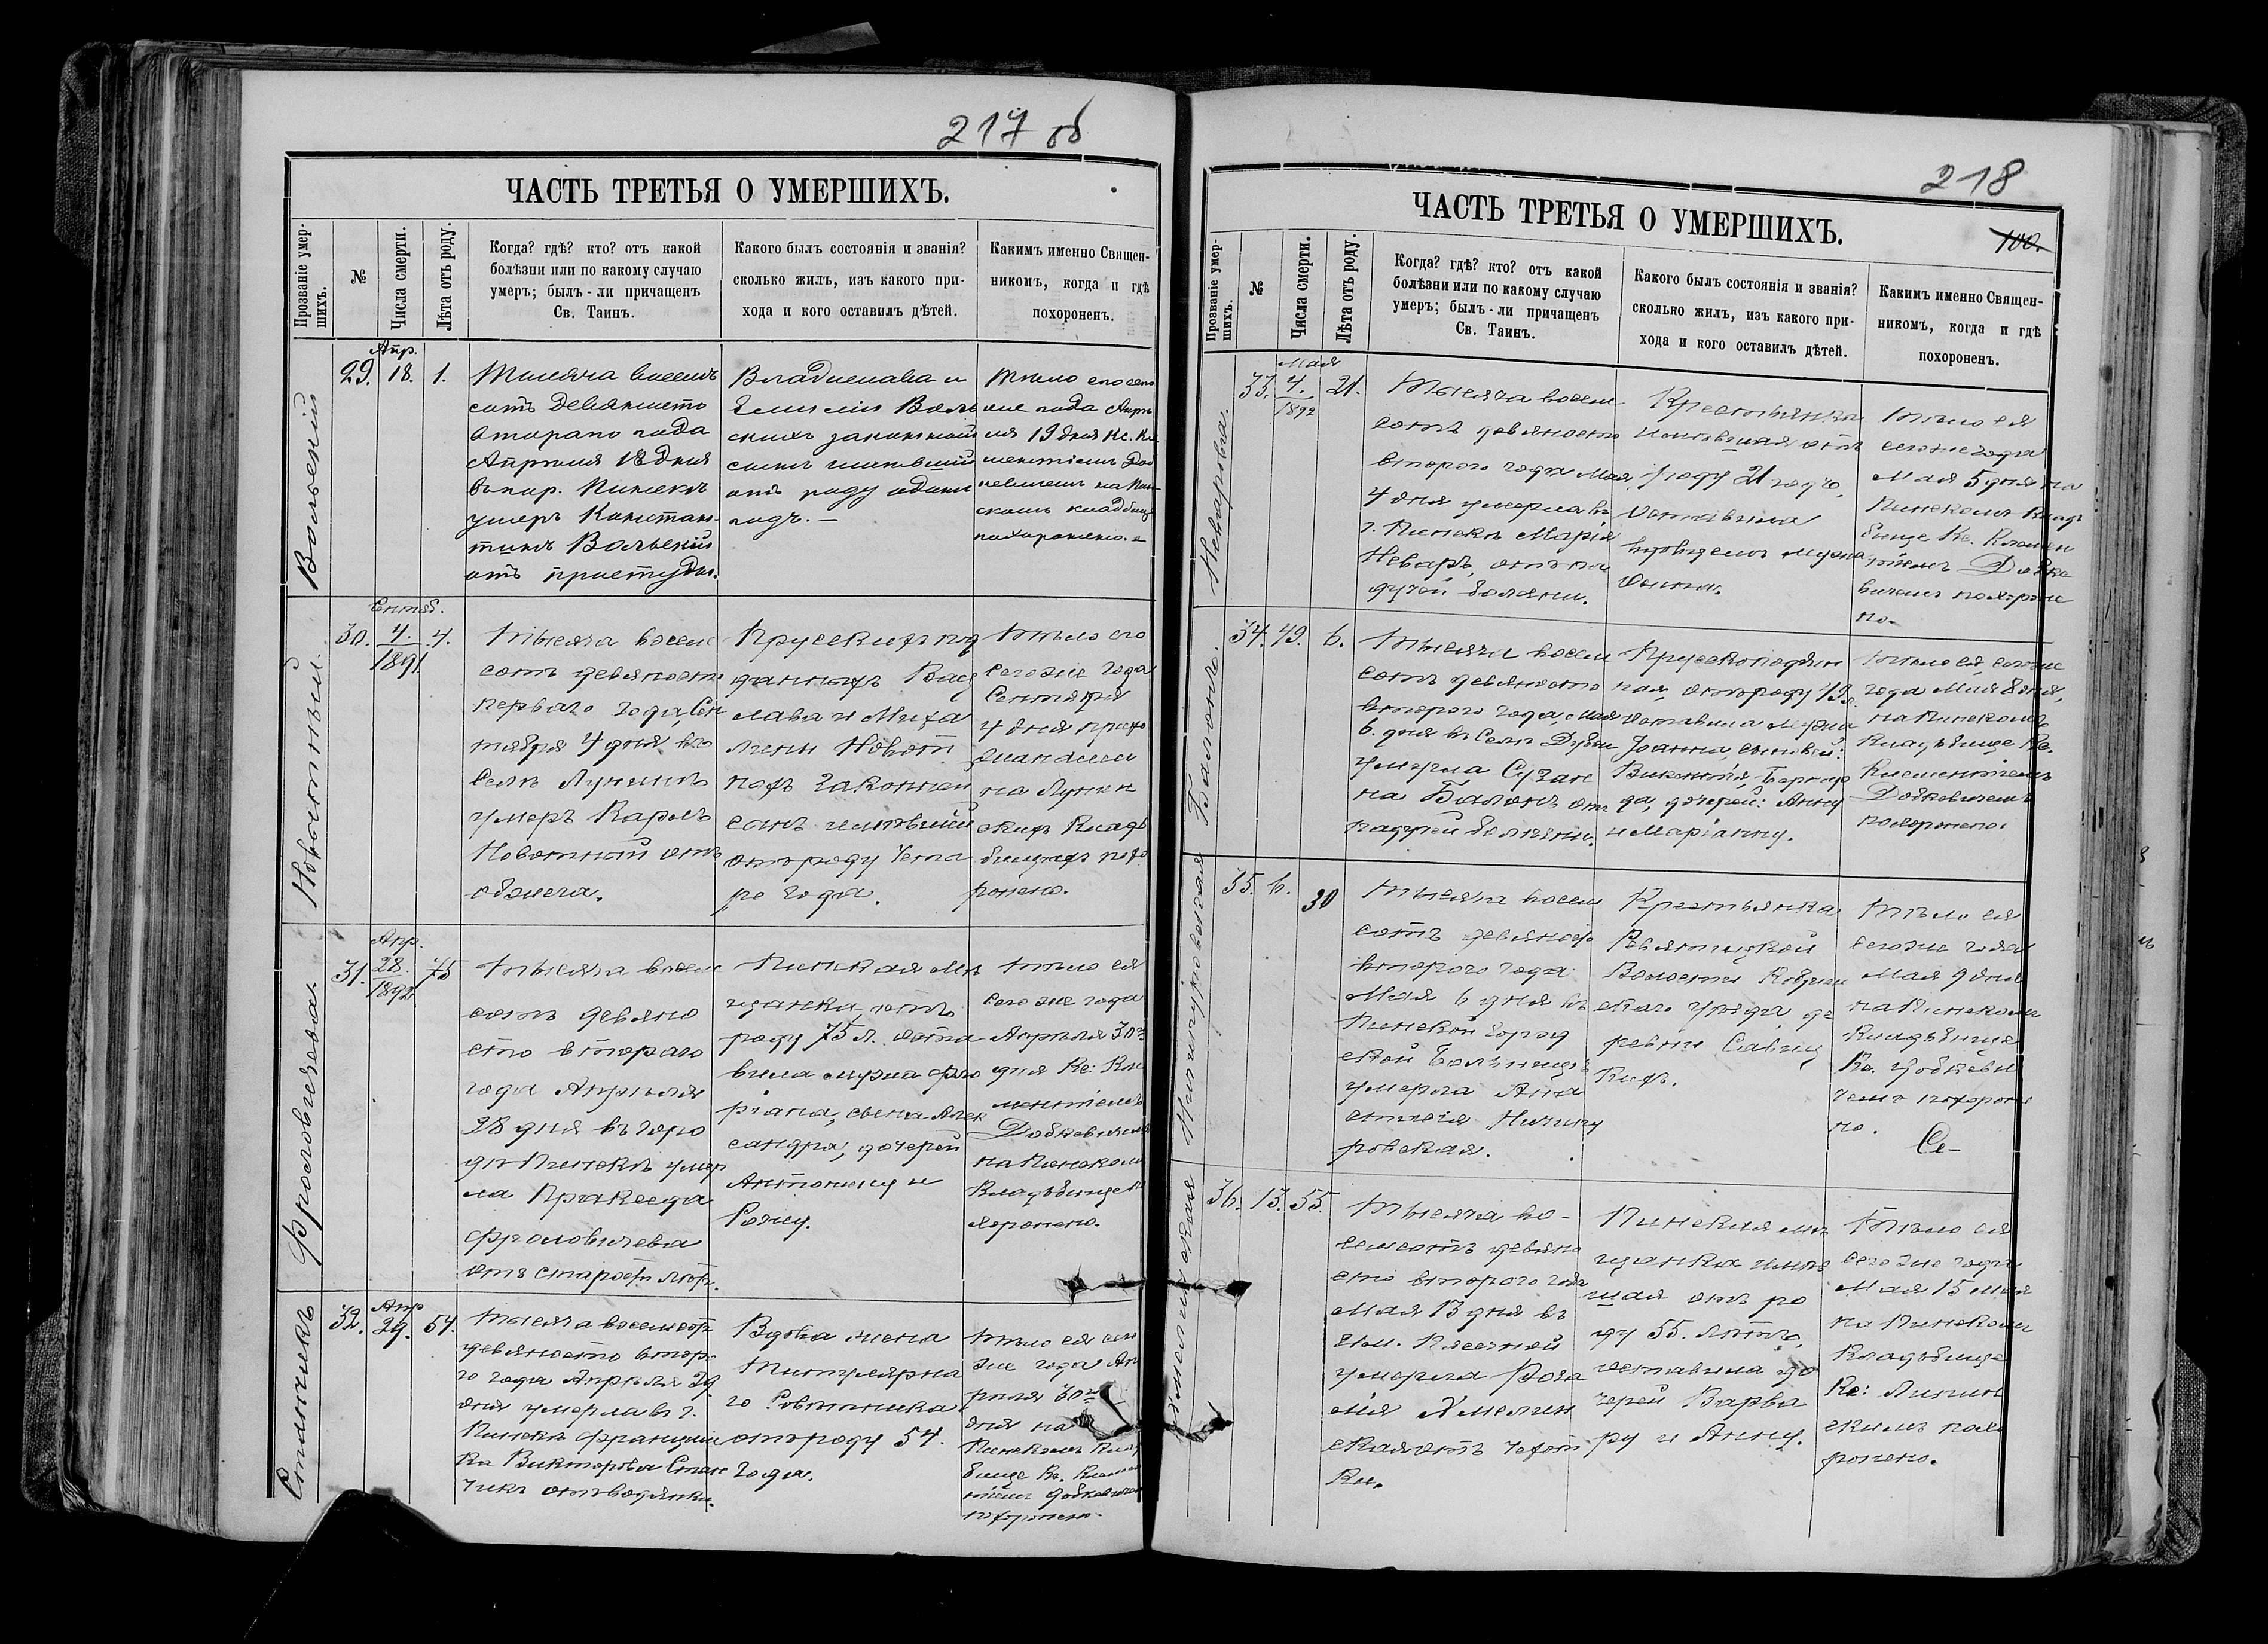 217 об
ЧАСТЬ ТРЕТЬЯ О УМЕРШИХЪ.
Прозваніе умер-
шихъ.
№
Числа смерти.
Лѣта отъ роду.
Когда? гдѣ? кто? отъ какой
болѣзни или по какому случаю
умеръ; былъ-ли причащенъ
Св. Таинъ.
Какого былъ состоянія и званія?
сколько жилъ, изъ какого при-
хода и кого оставилъ дѣтей.
Какимъ именно Священ-
никомъ, когда и гдѣ
похороненъ.
Вольскій
29.
Апр.
18.
1.
Тысяча восемь
сотъ девяносто
втораго года
Апрѣля 18 дня
въ гор. Пинскѣ
умеръ Констан-
тинъ Вольскій
отъ простуды.
Владислава и
Эмиліи Воль
скихъ законный
сынъ имѣвшій
отъ роду одинъ
годъ. —
Тѣло его сего
же года Апрѣ
ля 19 дня Кс. Кле
ментіемъ Доб
кевичемъ на Пин
скомъ кладбищѣ
похоронено.
Новотный.
30.
Сентяб.
4.
1891
4.
Тысяча восем
сотъ девяност
перваго года, Сен
тября 4 дня въ
селѣ Лунинѣ
умеръ Карлъ
Новотный отъ
обжега.
Прусскихъ под
данныхъ Вац
лава и Миха
лины Новот
ныхъ законный
сынъ имѣвшій
отъ роду четы
ре года.
Тѣло его
сегоже года
Сентября
4 дня прихо
жанами
на Лунин
скихъ клад
бищахъ похо
ронено.
Фроловичева
31.
Апр.
28.
1892
75
Тысяча восем
сотъ девяно
сто втораго
года Апрѣля
28 дня въ горо
дѣ Пинскѣ умер
ла Пракседа
Фроловичева
отъ старости лѣтъ.
Пинская мѣ
щанка, отъ
роду 75 л. оста
вила мужа Фло
ріана, сына Алек
сандра, дочерей
Антонину и
Розу.
Тѣло ея
сегоже года
Апрѣля 30го
дня Кс: Кле
ментіемъ
Добкевичемъ
на Пинскомъ
кладбищѣ по
хоронено.
32.
Апр
29.
54.
Тысяча восемсотъ
девяносто втор.
го года Апрѣля 29
дня умерла въ г.
Пинскѣ Францишка
Викторова
отъ водянки.
Вдова жена
Титулярна
го Совѣтника
отъ роду 54.
года.
Тѣло ея сего
же года Ап
рѣля 30го
дня на
Пинскомъ клад
бищѣ Кс. Клемен
тіемъ Добкевичемъ
похоронено.
218
100.
ЧАСТЬ ТРЕТЬЯ О УМЕРШИХЪ.
Прозваніе умер-
шихъ.
№
Числа смерти.
Лѣта отъ роду.
Когда? гдѣ? кто? отъ какой
болѣзни или по какому случаю
умеръ; былъ-ли причащенъ
Св. Таинъ.
Какого былъ состоянія и званія?
сколько жилъ, изъ какого при-
хода и кого оставилъ дѣтей.
Какимъ именно Священ-
никомъ, когда и гдѣ
похороненъ.
33.
Мая
4.
1892
21.
Тысяча восем
сотъ девяносто
второго года Мая
4 дня умерла въ
г. Пинскѣ Марія
Неваръ, отъ па
дучей болѣзни.
Крестьянка
имѣвшая отъ
роду 21 годъ,
оставила
вдовцемъ мужа
Тѣло ея
сегоже года
Мая 5 дня на
Пинскомъ клад
бищѣ Кс. Клемен
тіемъ Добке
вичемъ похороне
но.
Балонъ.
34.
49.
6.
Тысяча восем
сотъ девяносто
второго года, Мая
6. дня въ Селѣ
умерла Сузан
на Балонъ отъ
падучей болѣзни.
Прусскоподдан
ная, отъ роду 49 л.
оставила мужа
Іоанна, сыновей:
Викентія, Бернар
да, дочерей: Анну
и Маріанну.
Тѣло ея сегоже
года Мая 8 дня,
на Пинскомъ
кладбищѣ Кс.
Клементіемъ
Добкевичемъ
похоронено.
35.
6.
30
Тысяча восем
сотъ девяносто
второго года
Мая 6 дня въ
Пинской Город
ской Больницѣ
умерла Ана
стасія
Крестьянка
Волости Кобрин
скаго уѣзда, де
ревни Савиц
кихъ.
Тѣло ея
сегоже года
Мая 9 дня
на Пинскомъ
кладбищѣ
Кс. Добкеви
чемъ похороне
но.
36.
13.
55.
Тысяча во-
семсотъ девяно
сто второго года
Мая 13 дня въ
им. Плесчной
умерла
Хмелин
ская отъ чахот
ки.
Пинская мѣ
щанка имѣв
шая отъ ро
ду 55. лѣтъ,
оставила до
черей Варва
ру и Анну.
Тѣло ея
сегоже года
Мая 15 дня
на Пинскомъ
кладбищѣ
Кс:
скимъ похо
ронено.